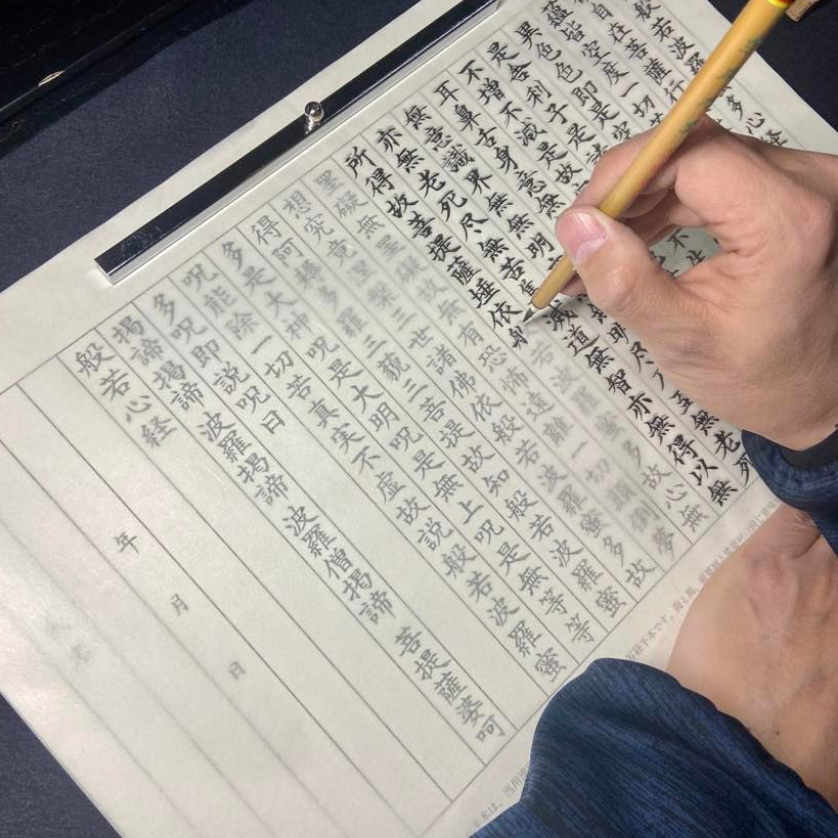 般若波羅 多心経
自在菩薩行
蘊皆空度一切
異色色即是空
是舍利子是諸
不増不減是故空
耳鼻舌身意無
無意識界無無明 明尽 至無老死
亦無老死尽無苦集滅道無智亦無得以無
所得故菩提薩埵依般若波羅蜜多故心無
罣礙無罣礙故無有恐怖遠離一切顛倒夢
想究竟涅槃三世諸佛依般若波羅蜜多故
得阿耨多羅三藐三菩提故知般若波羅蜜
多是大神呪是大明呪是無上呪是無等等
呪能除一切苦真実不虚故説般若波羅蜜
多呪即説呪曰
掲諦掲諦 波羅掲諦 波羅僧掲諦 菩提薩婆呵
般若心経
年 月 日